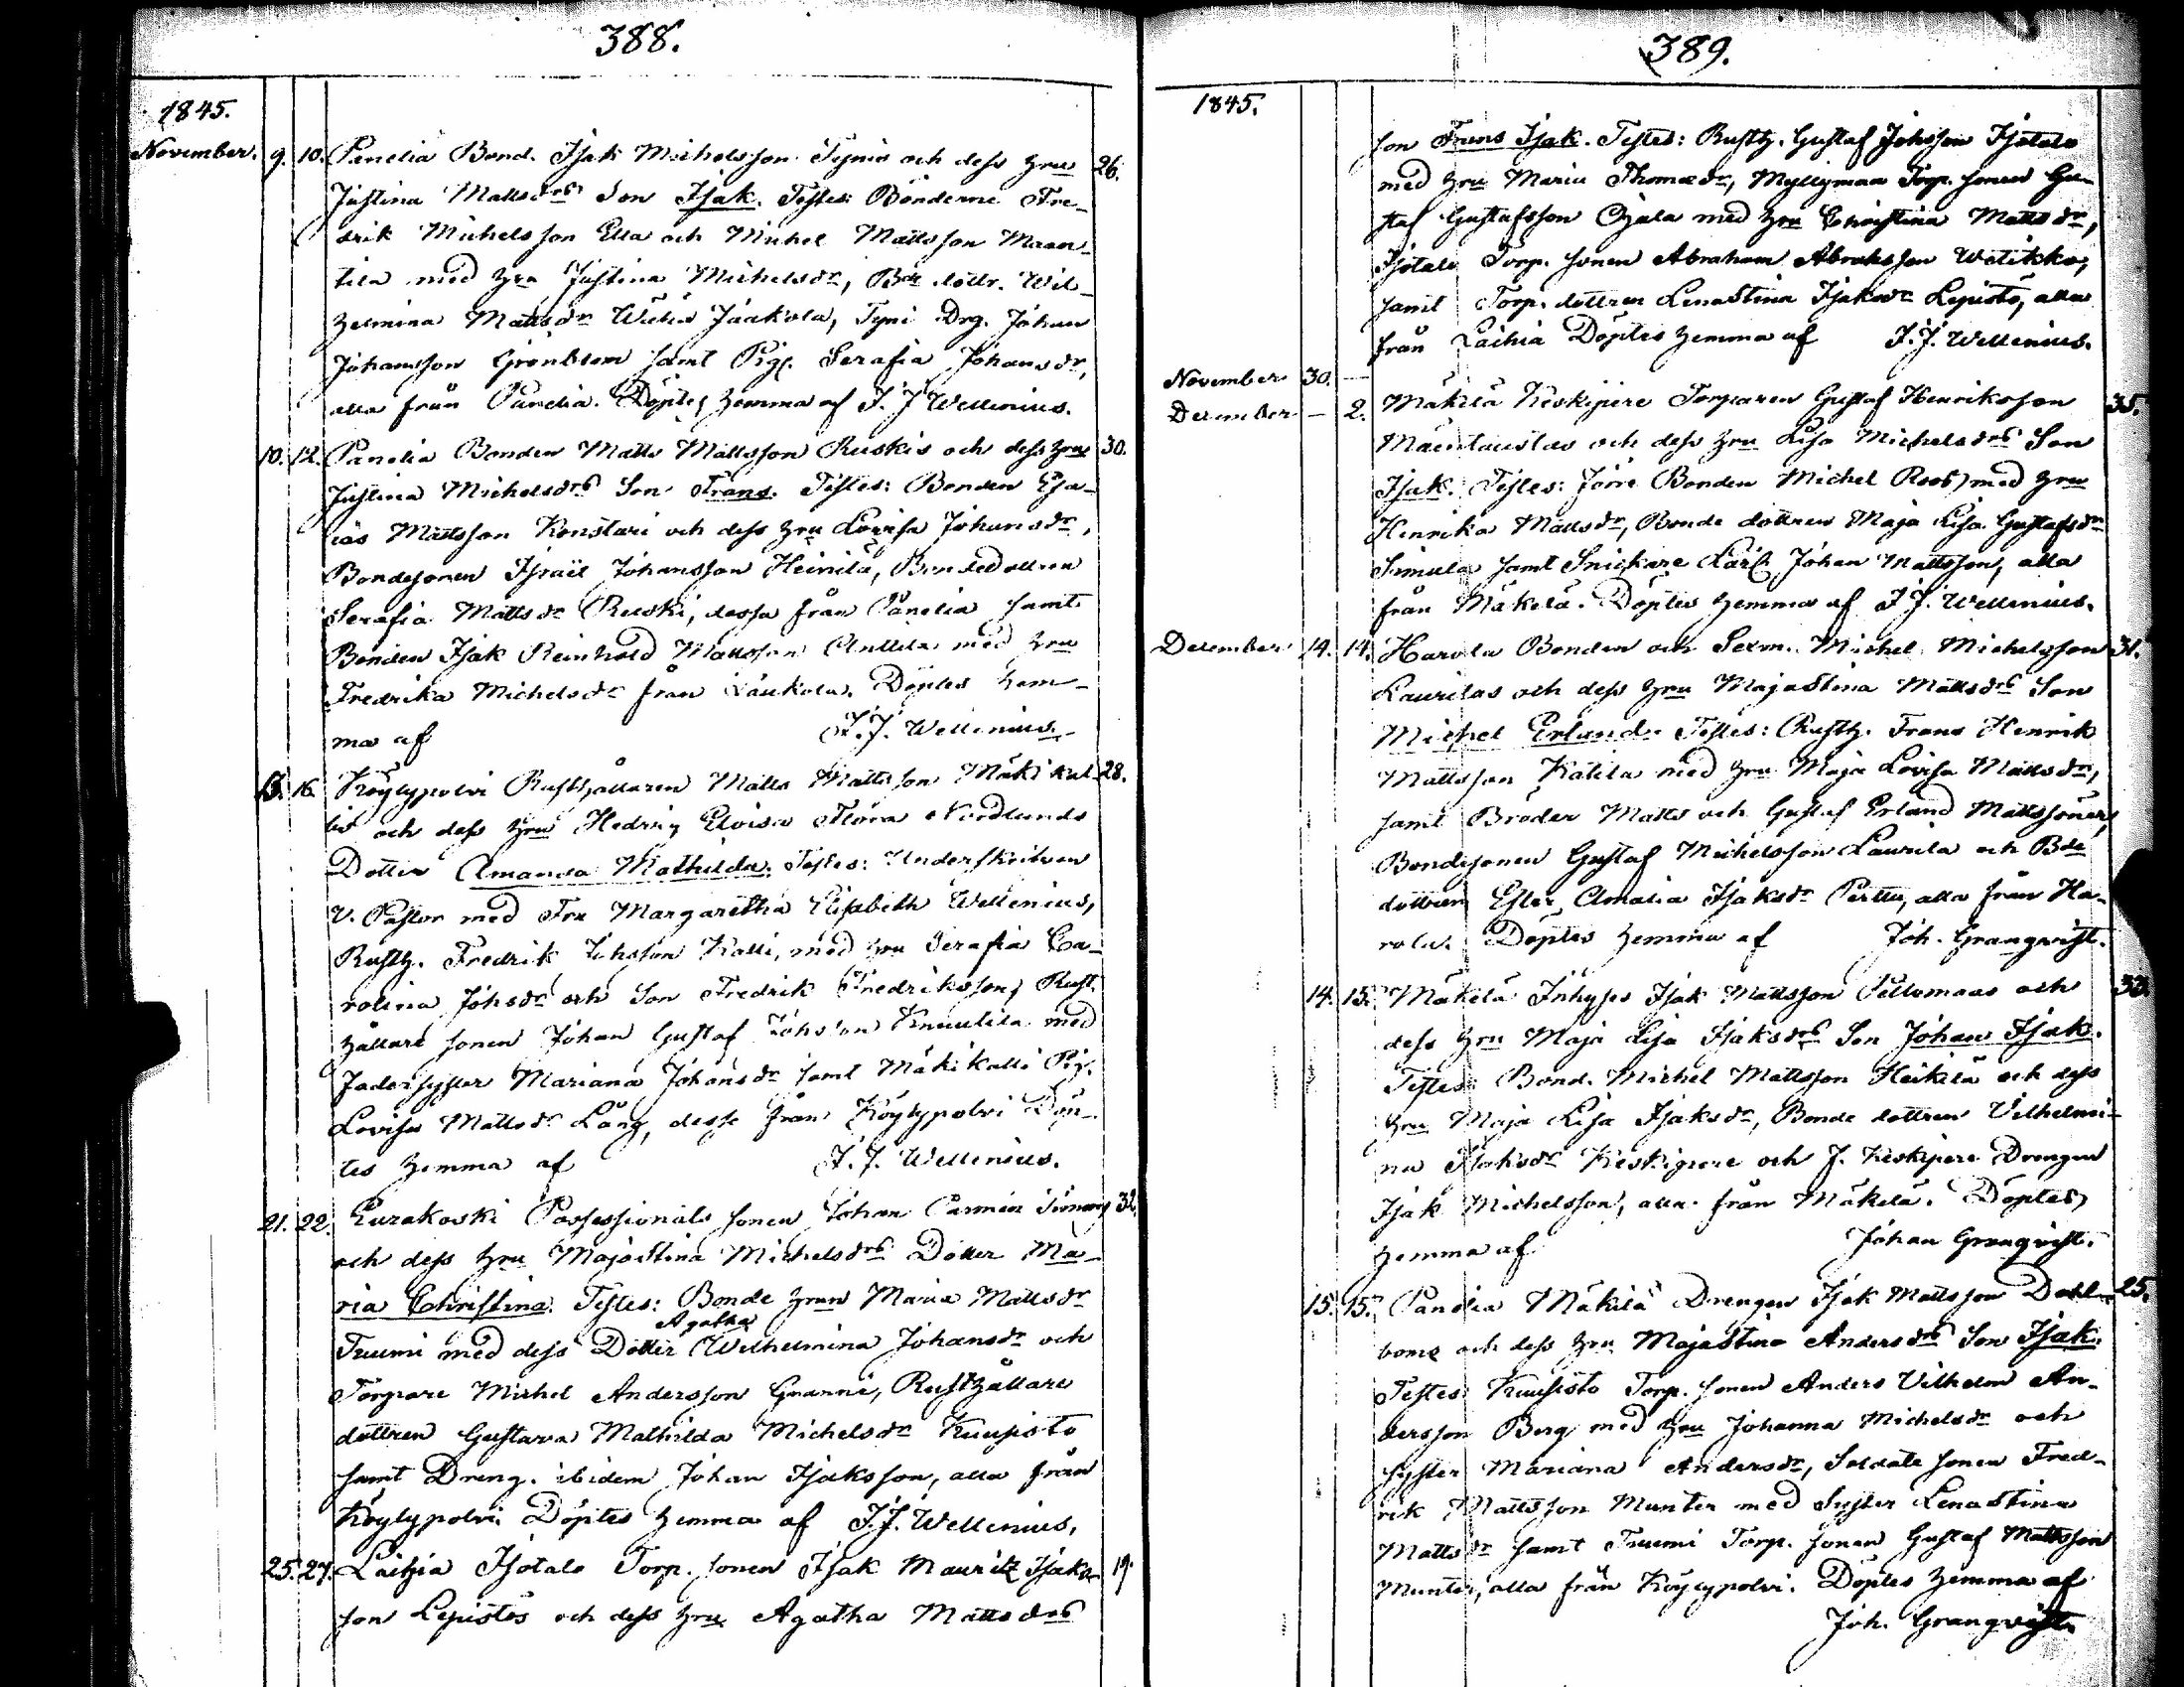 388.
1845.
November. 9. 10. Panelia Bond. Isak Michelsson Tynis och dess hru 26.
Justina Mattsdrs Son Isak. Testes: Bönderne Fre-
drik Michelsson Ella och Michel Mattsson Maan-
tila med hru Justina Michelsdr, Bde dottr. Wil-
helmina Mattsdr Jaakola, Tyni Drg. Johan
Johansson Grönblom samt Pig. Serafia Johansdr,
alla från Panelia. Döptes hemma af I. J. Wellenius.
10. 12. Panelia Bonden Matts Mattsson Ruskis och dess hru 30.
Justina Michelsdrs Son Frans. Testes: Bonden Esa-
ias Mattsson Konstari och dess hru Lovisa Johansdr,
Bondesonen Israel Johansson Heinilä, Bondedottren
Serafia Mattsdr Ruski, dessa från Panelia samt
Bonden Isak Reinhold Mattsson Anttila med hru
Fredrika Michelsdr från Laukola. Döptes hem-
ma af I. J. Wellenius.
15. 16. Köylypolvi Rusthållaren Matts Mattsson Mäki Kal- 28.
lis och dess hru Hedvig Elvisa Flora Nordlunds
Dotter Amanda Mathilda. Testes: Underskrifven
V. Pastor med Fru Margaretha Elisabeth Wellenius,
Rusth. Fredrik Johsson Kalli, med hru Serafia Ca-
rolina Johsdr och Son Fredrik Fredriksson, Rust-
hållare sonen Johan Gustaf Johsson Knuutila med
Fadersyster Mariana Johansdr samt Mäkikalli Pig.
Lovisa Mattsdr Lång, desse från Köylypolvi Döp-
tes hemma af I. J. Wellenius.
21. 22. Eurakoski Possessionats sonen Johan Carmén 32.
och dess hru Majastina Michelsdrs Dotter Ma-
ria Christina. Testes: Bonde hrun Maria Mattsdr
Agatha
Tuumi med dess Dotter Wilhelmina Johansdr och
Torpare Michel Andersson Granni, Rusthållare
dottren Gustava Mathilda Michelsdr Kuusisto
samt Dreng. ibidem Johan Isaksson, alla från
Köylypolvi. Döptes hemma af I. J. Wellenius.
25. 27. Laihia Isotalo Torp. sonen Isak Mauritz Isaks- 19.
son Lepistös och dess hru Agatha Mattsdrs
389.
1845.
son Frans Isak. Testes: Rusth. Gustaf Johsson Isotalo
med hru Maria Thomædr, Myllymaa Torp. sonen Gu-
staf Gustafsson Ojala med hru Christina Mattsdr,
Isotalo Torp. sonen Abraham Abraksson Wetikko,
samt Torp. dottren Lenastina Isaksdr Lepistö, alla
från Laihia Döptes hemma af I. J. Wellenius.
November 30. —
December — 2. Mäkilä Keskipere Torparen Gustaf Henriksson 35.
Mäentaustas och dess hru Lisa Michelsdrs Son
Isak. Testes: Jöire Bonden Michel Roos med hru
Henrika Mattsdr, Bonde dottren Maja Lisa Gustafsdr
Simula samt Snickare Lärl. Johan Mattsson, alla
från Mäkelä. Döptes hemma af I. J. Wellenius.
December 14. 14. Harola Bonden och Sexm. Michel Michelsson 31.
Laurilas och dess hru Majastina Mattsdrs Son
Michel Erland. Testes: Rusth. Frans Henrik
Mattsson Kätilä med hru Maja Lovisa Mattsdr,
samt Bröder Matts och Gustaf Erland Mattssöner,
Bondesonen Gustaf Michelsson Laurila och Bde
dottren Ester Amalia Isaksdr Perttu, alla från Ha-
rola. Döptes hemma af Joh. Granqvist.
14. 15. Mäkelä Inhyses Isak Mattsson Peltomaas och 33.
dess hru Maja Lisa Isaksdrs Son Johan Isak.
Testes: Bond. Michel Mattsson Heikilä och dess
hru Maja Lisa Isaksdr, Bonde dottren Vilhelmi-
na Isaksdr Keskipere och J. Keskipere Drengen
Isak Michelsson, alla från Mäkelä. Döptes
hemma af Johan Granqvist.
15. 15. Panelia Mäkilä Drengen Isak Mattsson Dahl- 25.
boms och dess hru Majastina Andersdrs Son Isak.
Testes: Kuusisto Torp. sonen Anders Vilhelm An-
dersson Berg med hru Johanna Michelsdr och
syster Mariana Andersdr, Soldate sonen Fred-
rik Mattsson Munter med Syster Lenastina
Mattsdr samt Tuumi Torp. sonen Gustaf Mattsson
Munter, alla från Köylypolvi. Döptes hemma af
Joh. Granqvist.